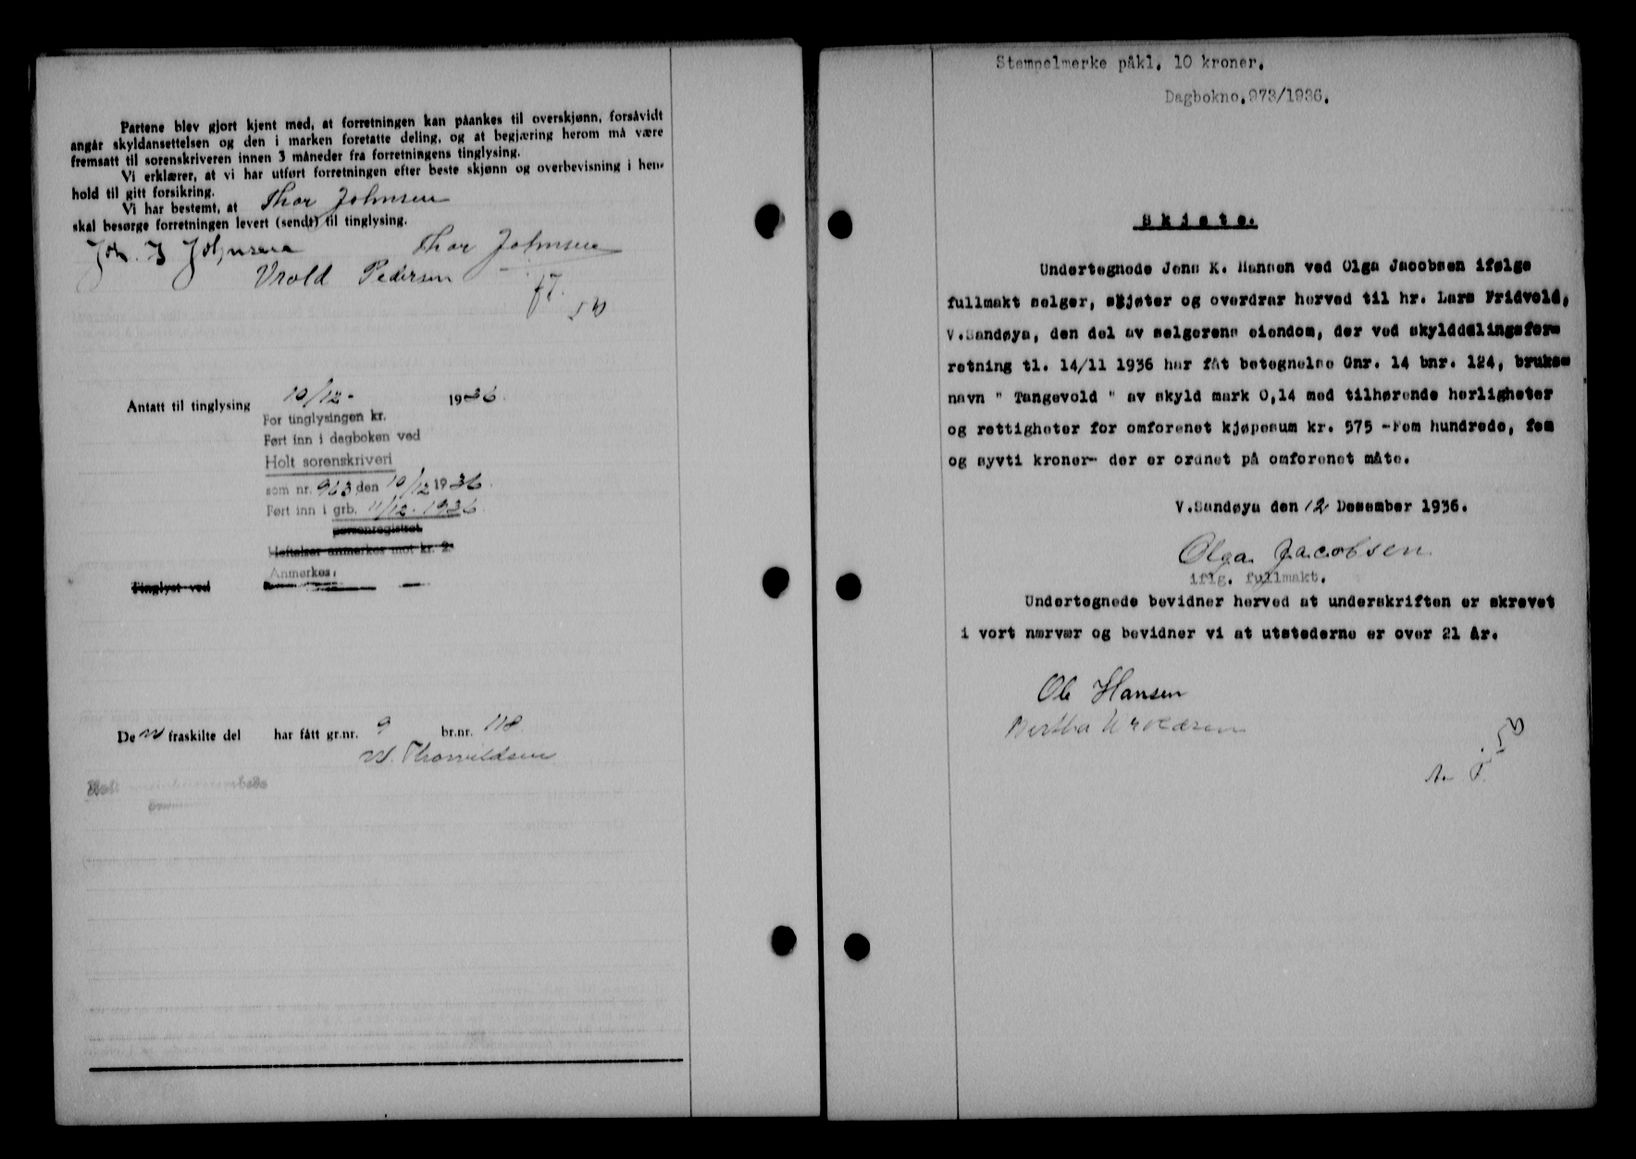 Partene blev gjort kjent med, at forretningen kan påankes til overskjønn, forsåvidt
angår skyldansettelsen og den i marken foretatte deling, og at begjæring herom må være
fremsatt til sorenskriveren innen 3 måneder fra forretningens tinglysing.
Vi erklærer, at vi har utført forretningen efter beste skjønn og overbevisning i hen-
hold til gitt forsikring.
Vi har bestemt, at Thor Johnsen
skal besørge forretningen levert (sendt) til tinglysing.
Joh. J Johnsen Thor Johnsen
Vrold Pedersen
Antatt til tinglysing 10/12- 1936.
For tinglysingen kr.
Ført inn i dagboken ved
Holt sorenskriveri
som nr. 963 den 10/12 1936.
Ført inn i grb. 11/12. 1936.
personregistret
Heftelser anmerkes mot kr. 2.
Anmerkes:
Tinglyst ved
De n fraskilte del har fått gr.nr. 9 br.nr. 118.
N. Thorvildsen
Stempelmerke påkl. 10 kroner.
Dagbokno.973/1936.
Skjøte.
Undertegnede Jens K. Hansen ved Olga Jacobsen ifølge
fullmakt selger, skjøter og overdrar herved til hr. Lars Fridvold,
V.Sandøya, den del av selgerens eiendom, der ved skylddelingsfor=
retning tl. 14/11 1936 har fåt betegnelse Gnr. 14 bnr. 124, bruks=
navn " Tangevold " av skyld mark 0,14 med tilhørende herligheter
og rettigheter for omforenet kjøpesum kr. 575 -Fem hundrede, fem
og syvti kroner- der er ordnet på omforenet måte.
V.Sandøya den 12 Desember 1936.
Olga Jacobsen
iflg. fullmakt.
Undertegnede bevidner herved at underskriften er skrevet
i vort nærvær og bevidner vi at utstederne er over 21 år.
Ole Hansen